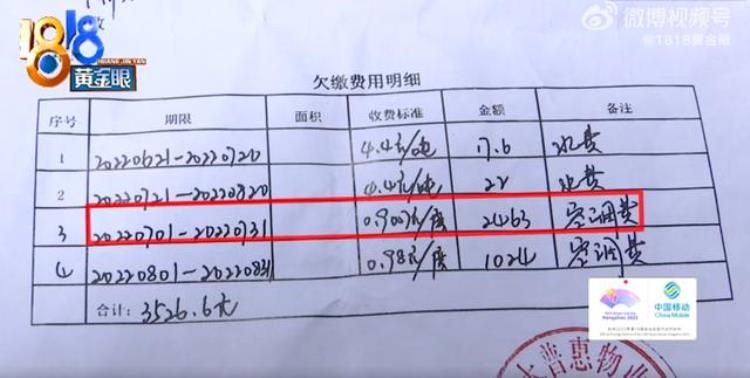 1818
HUANG JIN YAN
黄金眼
微博视频号
@1818黄金眼
欠缴费用明细
序号 期限 面积 收费标准 金额 备注
1 20220621-20220720 4.4元/吨 17.6 水费
2 20220721-20220820 4.4元/吨 22 水费
3 20220701-20220731 元/度 2463 空调费
4 20220801-20220831 0.98元/度 1024 空调费
合计: 3526.6元
Hangzhou 2022
中国移动
China Mobile
普惠物业